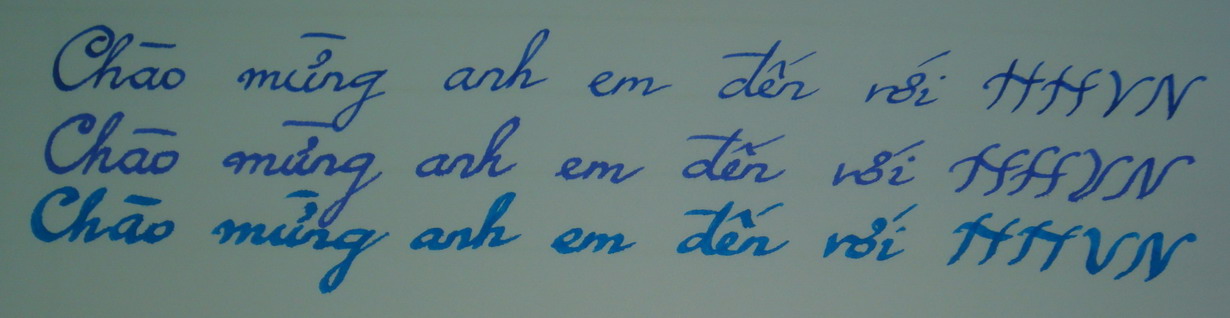 Chào mừng anh em đến với HHVN
Chào mừng anh em đến với HHVN
Chào mừng anh em đến với HHVN